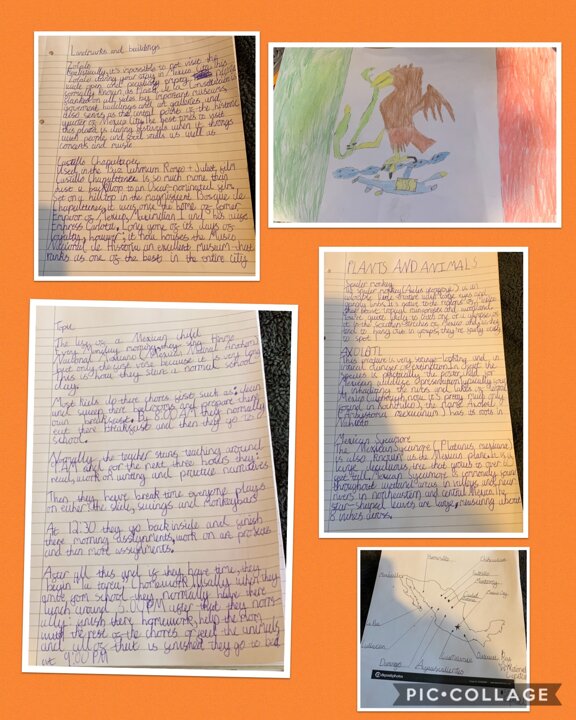 Landmarks and buildings
Zocalo
Realistically, it's impossible to not visit the
Zocalo during your stay in Mexico City. This
wide open and peculiarly empty
formally known as Plaza de la Constitucion is
flanked on all sides by important museums,
goverment buildings and art galleries, and
also serves as the central point of the historic
quarter of Mexico City. The best times to visit
this place is during festivals when it throngs
with people and food stalls as well as
concerts and music.
Castillo Chapultepec
Used in the Baz Luhrmum Romeo + Juliet film
Castillo Chapultepec is so much more than
Just a backdrop to an Oscar-nominated film.
Set on a hilltop in the magnificent Bosque de
Chapultepec it was once the home of former
Emperor of Mexico, Maximilian I and his wife
Empress Carlota. Long gone of its days of
loyalty, however; it now houses the Museo
Nacional de Historia an excellent museum that
ranks as one of the best in the entire city
PLANTS AND ANIMALS
Spider monkey
The spider monkey (Ateles geoffroyi) is an
adorable little creature with large eyes and
gangly limbs. It's native to the regions of Mexico
that have tropical rainforests and woodland.
You're quite likely to catch one or a glimpse of
it in the southern stretches of Mexico and as they
tend to hang out in groups, they're fairly easy
to spot!
AXOLOTL
This creature is very striking-looking and in
critical danger of extinction. In fact the
species is practically the poster child for
Mexican wildlife representation. Typically
it inhabited the rivers and lakes of
Mexico City (though now, it's pretty much only
found in Xochimilco), the name Axolotl
(Ambystoma mexicanum) has its roots in
Nahuatl
Mexican Sycamore
The Mexican Sycamore (Platanus mexicana)
is also known as the Mexican plane. It is a
large deciduous tree that grows to over 60
feet tall. Mexican Sycamore is commonly found
throughout wetland areas in valleys and near
rivers in northeastern and central Mexico. The
star-shaped leaves are large, measuring about
8 inches across.
Topic
The life of a Mexican child
Every Monday morning they sing Himno
Nacional Mexicano (Mexican National anthem)
but only the first verse because it is very long
This is how they start a normal school
day.
Most kids do there chores first such as: clean
and sweep there bedrooms and prepare there
own breakfast. By 8:00 AM they normally
eat there breakfast and then they go to
school.
Normally the teacher starts teaching around
9 AM and for the next three hours they:
read, work on writing and practice numbers.
Then they have break time everyone plays
on either the slide, swings and monkeybars
At 12:30 they go back inside and finish
there morning assignments, work on are projects
and then more assignments.
After all this and if they have time, they
begin there homework. Usually when they
arrive from school they normally have there
lunch around 3:00 PM after that they norm-
ally: finish there homework, help the mom
with the rest of the chores or feed the animals
and when all of that is finished they go to bed
at 9:00 PM
Hermosillo
Chihuahua
Saltillo
Monterrey
Mexicali
La Paz
Culiacan
Durango
Aguascalientes
Guadalajara
depositphotos
PIC•COLLAGE